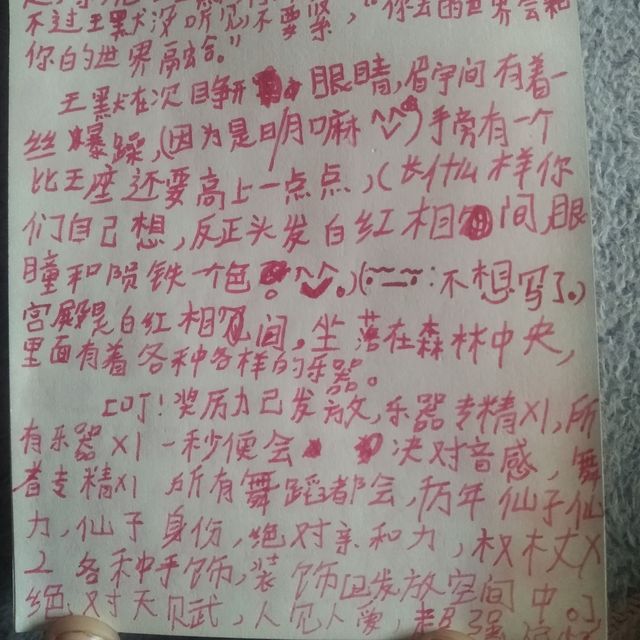 不过王默没听见不要紧，"你去的世界会和
你的世界融合。"
王默在次睁开眼睛，眉宇间有着一
丝爆躁，(因为是明嘛^^)手旁有一个
比王座还要高上一点点，(长什么样你
们自己想，反正头发白红相间，眼
瞳和陨铁一个色。^^。)(:不想写了。)
宫殿是白红相间，坐落在森林中央，
里面有着各种各样的乐器。
叮！奖历力已发放，乐器专精X1，所
有乐器X1一秒便会 决对音感，舞
者专精X1 所有舞蹈都会，历年仙子仙
力，仙子身份，绝对亲和力，权杖X
2 各种手饰，装饰回发放空间中。
绝对天贝武，人见人爱，超强